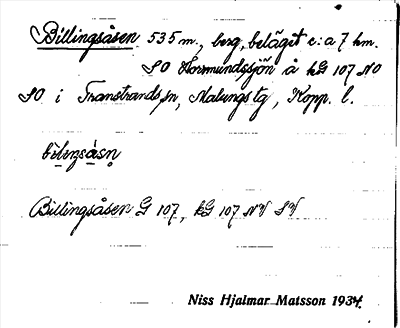 Billingsåsen 535 m., berg, beläget c:a 7 km.
SO Horrmundssjön å kG 107 NO
SO i Transtrands sn, Malungs tg, Kopp. l.
Billingsåsen G 107, kG 107 NV SV
Niss Hjalmar Matsson 1934.